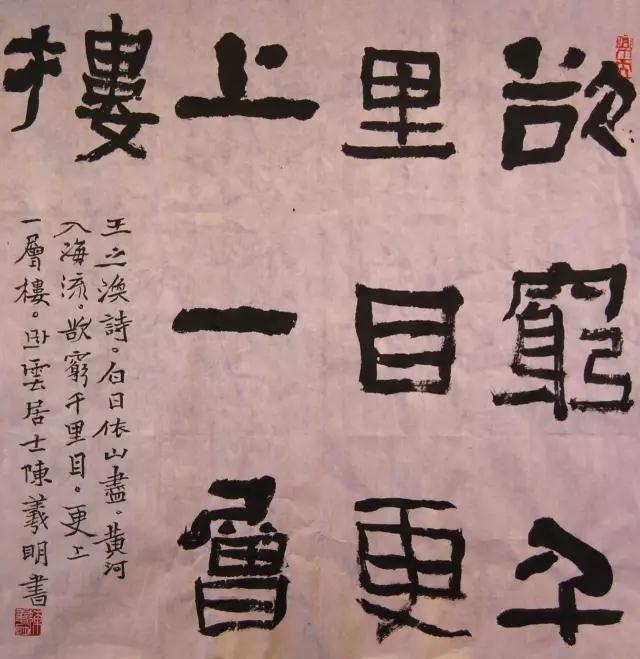 欲窮千
里目更
上一層
樓
王之渙詩。白日依山盡。黃河
入海流。欲窮千里目。更上
一層樓。臥雲居士陳羲明書